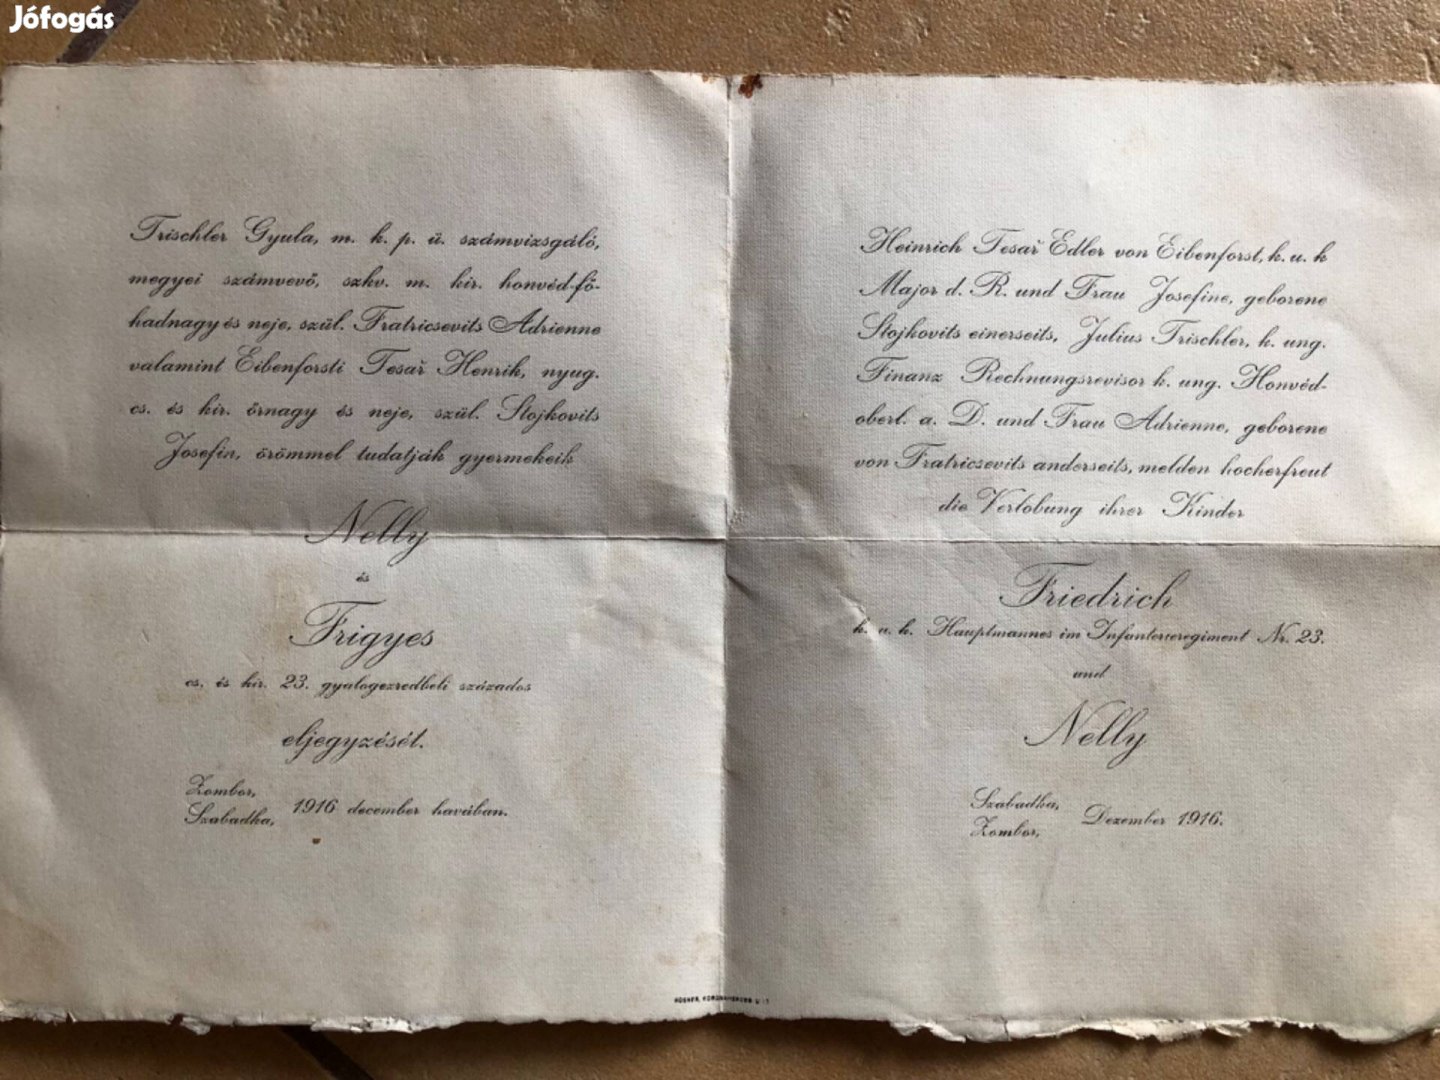 Jófogás
Trischler Gyula, m. k. p. ü. számvizsgáló,
megyei számvevő, szkv. m. kir. honvéd-fő-
hadnagy és neje, szül. Fratricsevits Adrienne
valamint Eibenforsti Tesař Henrik, nyug.
cs. és kir. őrnagy és neje, szül. Stojkovits
Josefin, örömmel tudatják gyermekeik
Nelly
és
Frigyes
cs. és kir. 23. gyalogezredbeli százados
eljegyzését.
Zombor,
Szabadka, 1916 december havában.
Heinrich Tesař Edler von Eibenforst, k. u. k
Major d. R. und Frau Josefine, geborene
Stojkovits einerseits, Julius Trischler, k. ung.
Finanz Rechnungsrevisor k. ung. Honvéd-
oberl. a. D. und Frau Adrienne, geborene
von Fratricsevits anderseits, melden hocherfreut
die Verlobung ihrer Kinder
Friedrich
k. u. k. Hauptmannes im Infanterieregiment Nr. 23.
und
Nelly
Szabadka,
Zombor, Dezember 1916.